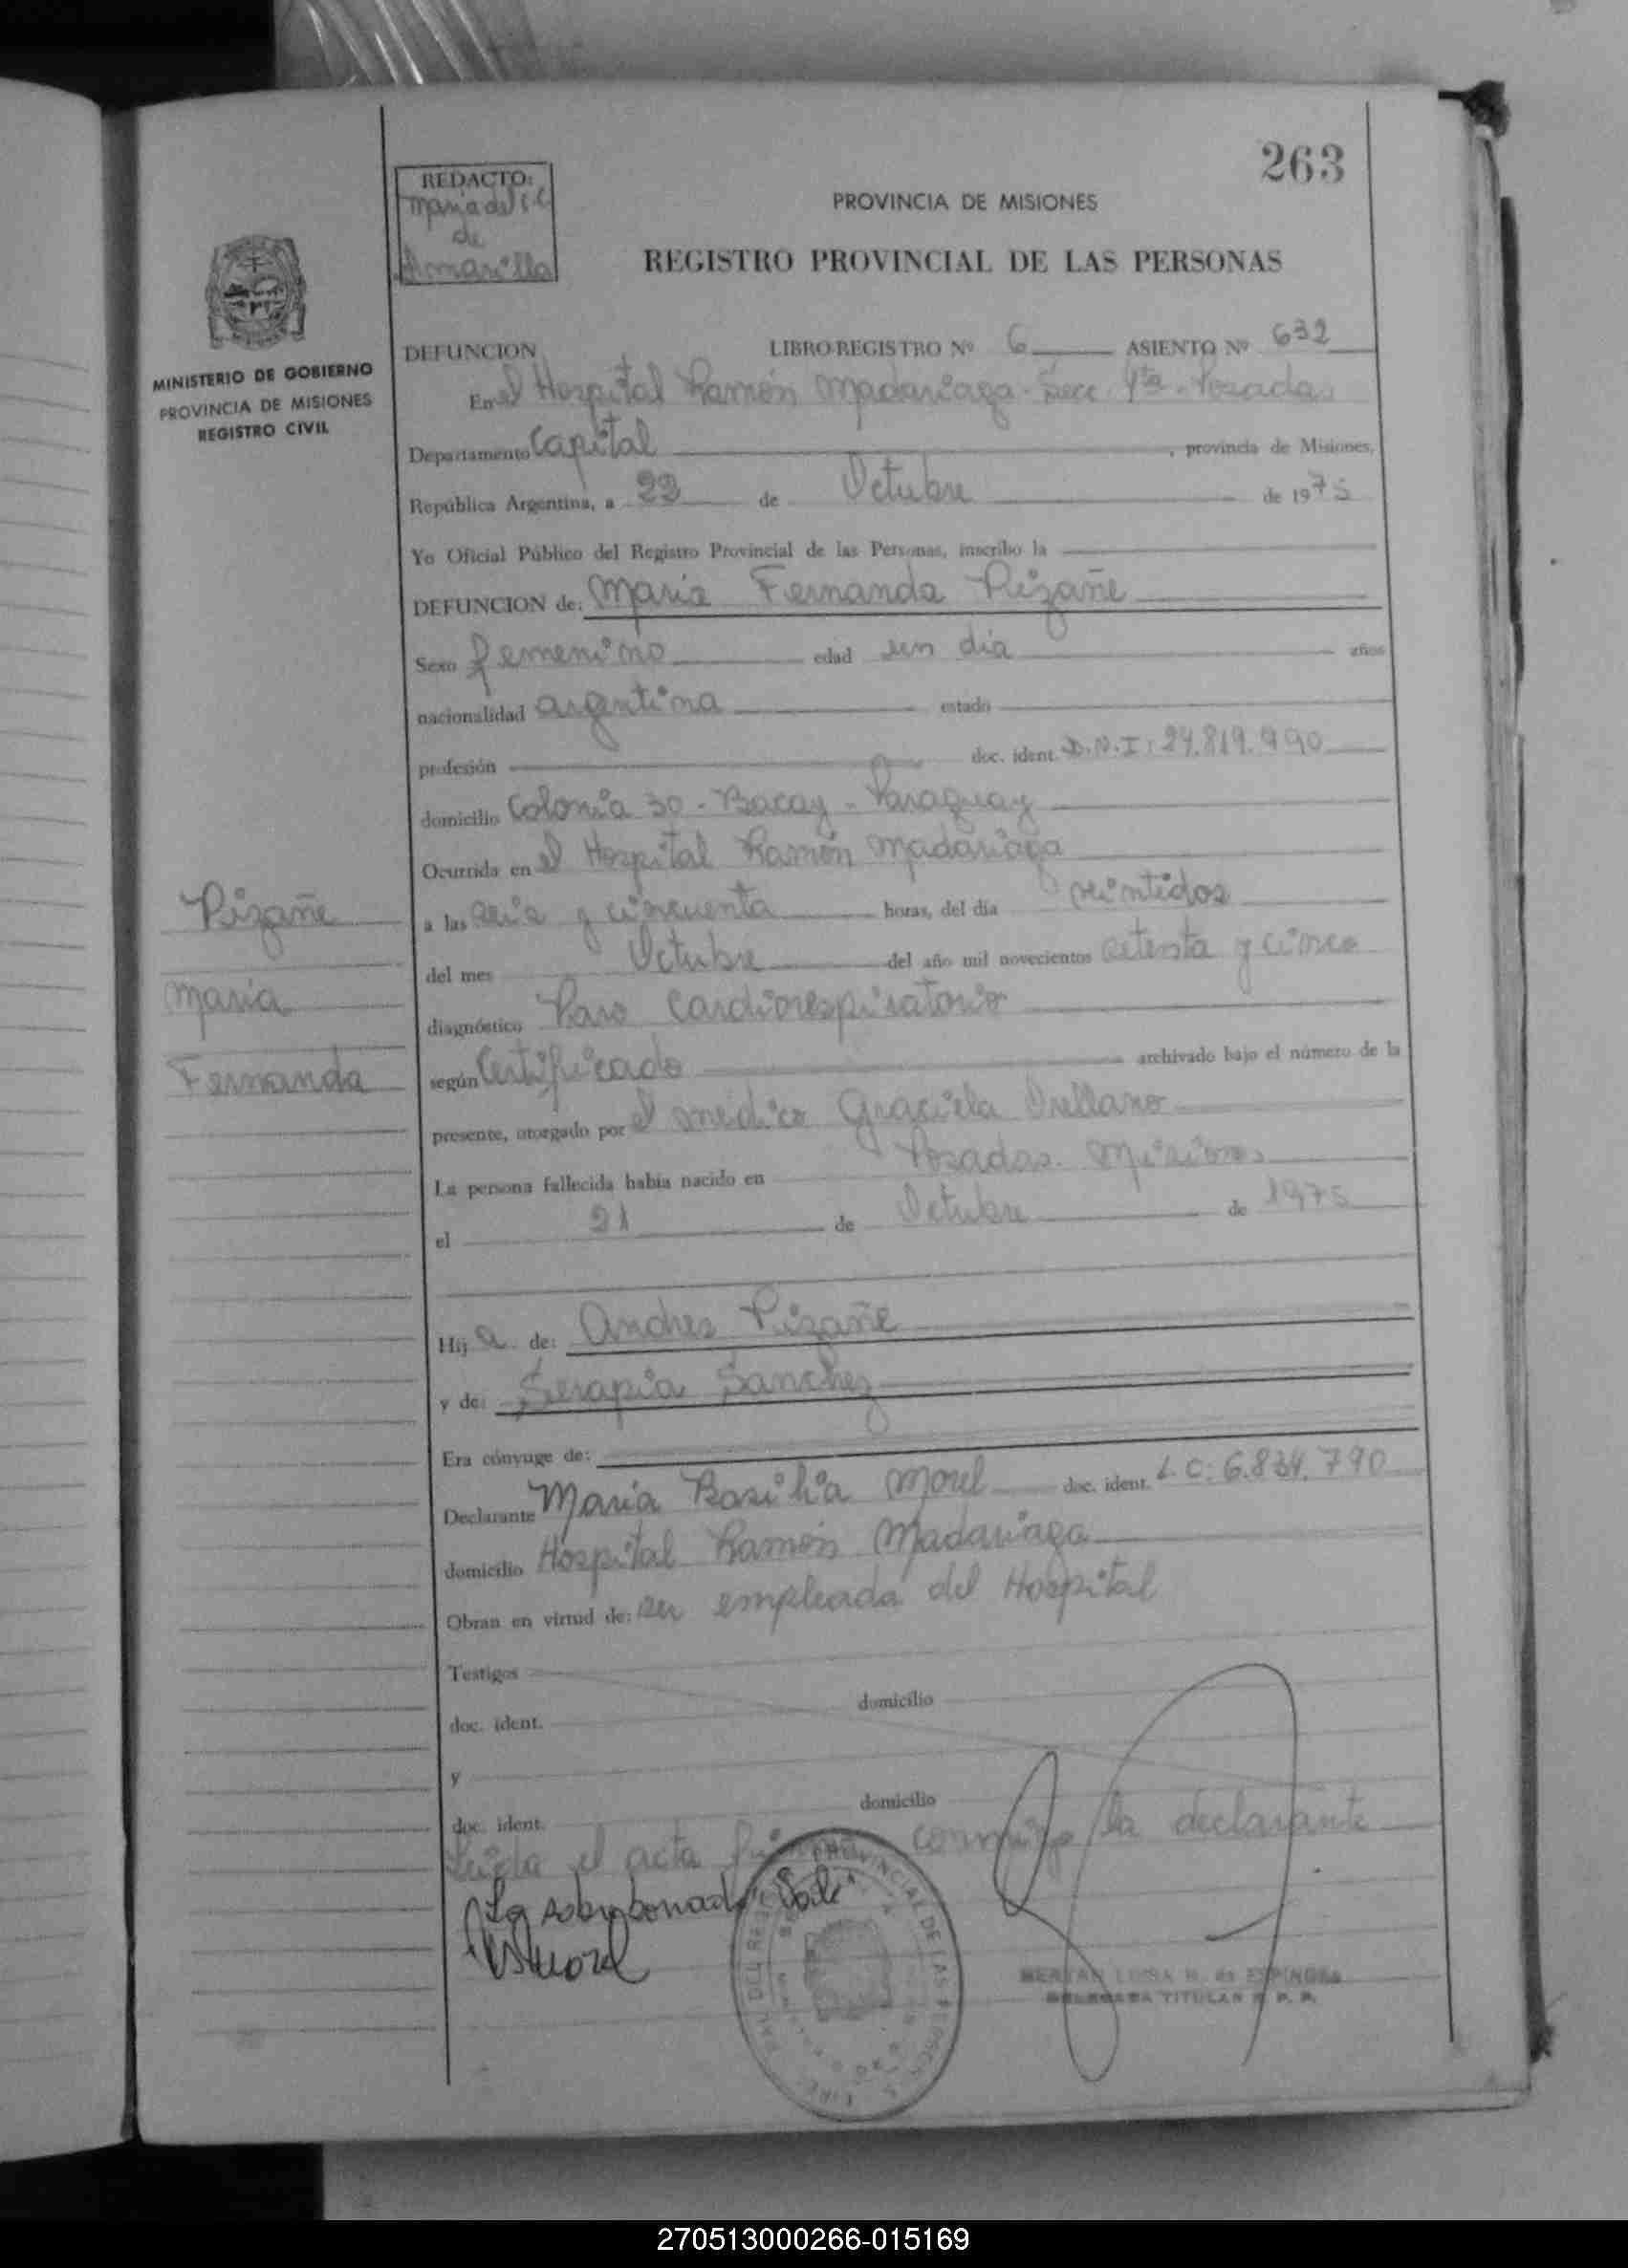 263
REDACTO:
Maria del C.
de
Amarilla
PROVINCIA DE MISIONES
REGISTRO PROVINCIAL DE LAS PERSONAS
MINISTERIO DE GOBIERNO
PROVINCIA DE MISIONES
REGISTRO CIVIL
DEFUNCION LIBRO REGISTRO Nº 6 ASIENTO Nº 632
En el Hospital Ramón Madariaga - Secc. 4ta - Posadas
Departamento Capital, provincia de Misiones,
República Argentina, a 22 de Octubre de 1975
Yo Oficial Público del Registro Provincial de las Personas, inscribo la
DEFUNCION de: Maria Fernanda Pizañe
Sexo femenino edad un dia años
nacionalidad argentina estado
profesión doc. ident. D.N.I: 24.819.990
domicilio Colonia 30 - Bacay - Paraguay
Ocurrida en el Hospital Ramón Madariaga
a las seis y cincuenta horas, del día veintidos
del mes Octubre del año mil novecientos setenta y cinco
diagnóstico Paro Cardiorespiratorio
según Certificado archivado bajo el número de la
presente, otorgado por el médico Graciela Orellano
La persona fallecida había nacido en Posadas. Misiones
el 21 de Octubre de 1975
Hija de: Andres Pizañe
y de: Serapia Sanchez
Era cónyuge de:
Declarante Maria Basilia Morel doc. ident. L.C: 6.834.790
domicilio Hospital Ramón Madariaga
Obran en virtud de: ser empleada del Hospital
Testigos
domicilio
doc. ident.
y
domicilio
doc. ident.
Leida el acta firma conmigo la declarante
Lo sobreborrado "Vale"
Morel
BERTHA LUISA B. de ESPINOSA
DELEGADA TITULAR R. P. P.
Pizañe
Maria
Fernanda
270513000266-015169